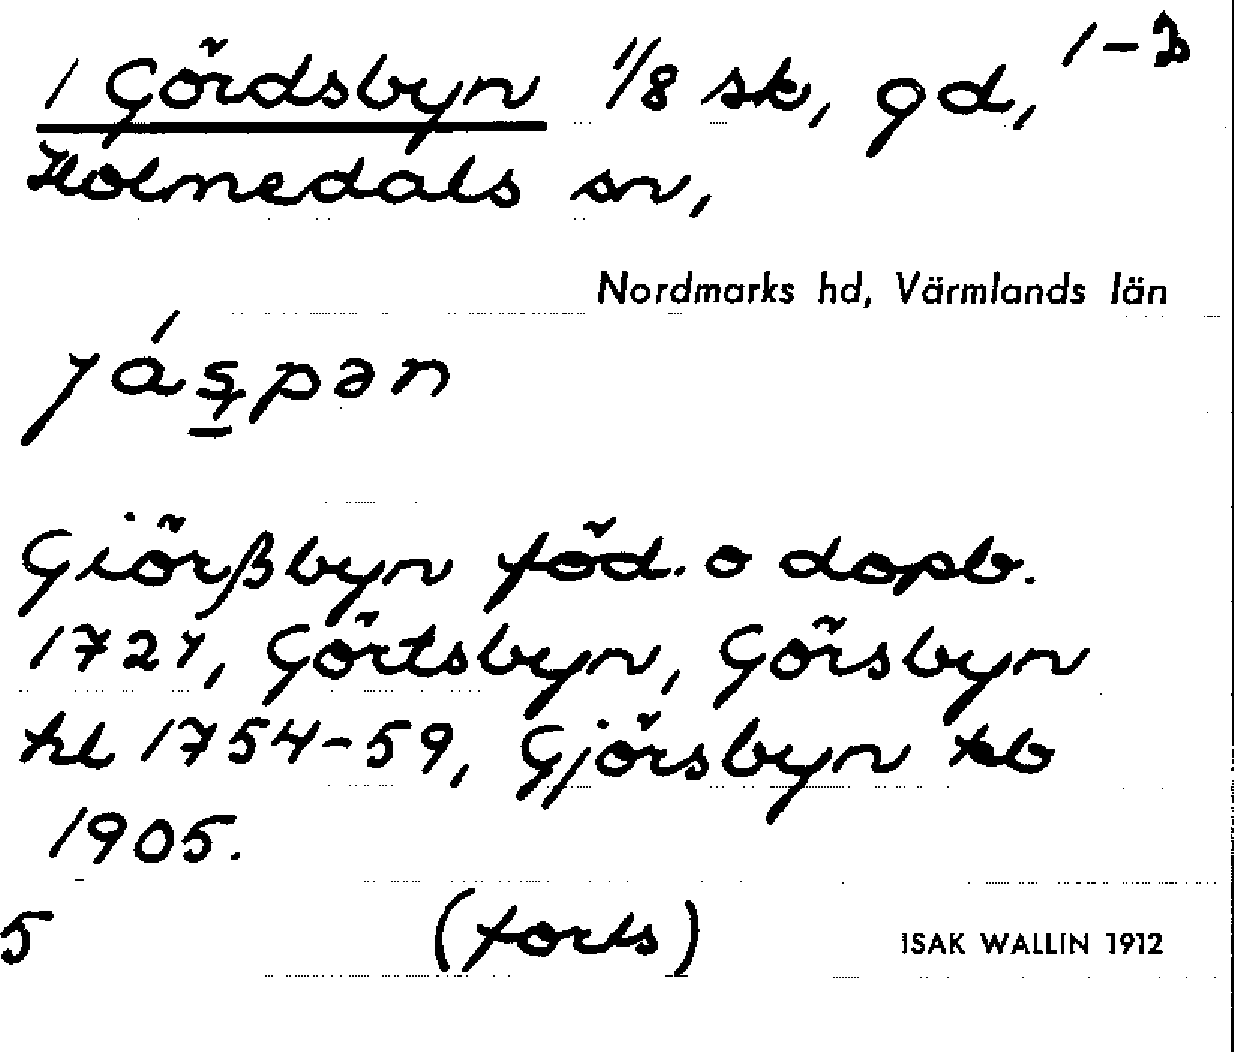 1 Gördsbyn 1/8 sk, gd, 1-2
Holmedals sn,
Nordmarks hd, Värmlands län
Giörßbyn föd. o dopb.
1727, Görtsbyn, Görsbyn
hl 1754-59, Gjörsbyn kb
1905.
5 (forts) ISAK WALLIN 1912